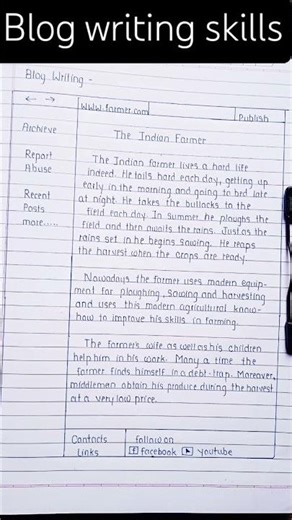 Blog writing skills
Blog Writing -
← →
www.farmer.com
Publish
Archieve
Report
Abuse
Recent
Posts
more.....
The Indian Farmer
The Indian farmer lives a hard life
indeed. He toils hard each day, getting up
early in the morning and going to bed late
at night. He takes the bullocks to the
field each day. In summer he ploughs the
field and then awaits the rains. Just as the
rains set in he begins sowing. He reaps
the harvest when the crops are ready.
Nowadays, the farmer uses modern equip-
ment for ploughing, sowing and harvesting
and uses this modern agricultural know-
how to improve his skills in farming.
The farmer's wife as well as his children
help him in his work. Many a time the
farmer finds himself in a debt-trap. Moreover,
middlemen obtain his produce during the harvest
at a very low price.
Contacts
Links
follow on
f facebook ▶ youtube